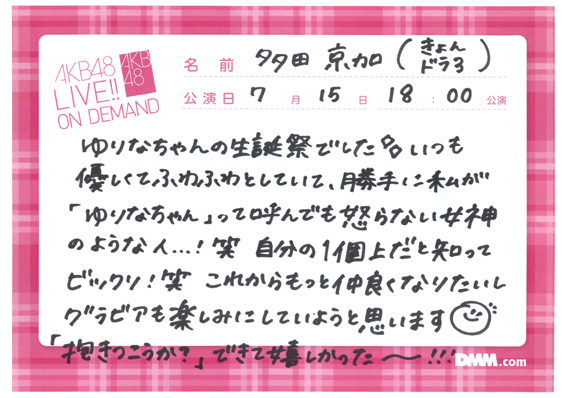 AKB48
LIVE!!
ON DEMAND
AKB
48
名前 多田 京加 (きょん
ドラ3)
公演日 7月15日 18:00 公演
ゆりなちゃんの生誕祭でした いつも
優しくて、ふわふわとしていて、勝手に私が
「ゆりなちゃん」って呼んでも怒らない女神
のような人...! 笑 自分の1個上だと知って
ビックリ! 笑 これからもっと仲良くなりたいし
グラビアも楽しみにしていようと思います
「抱きつこうか?」できて嬉しかった〜!!!
DMM.com